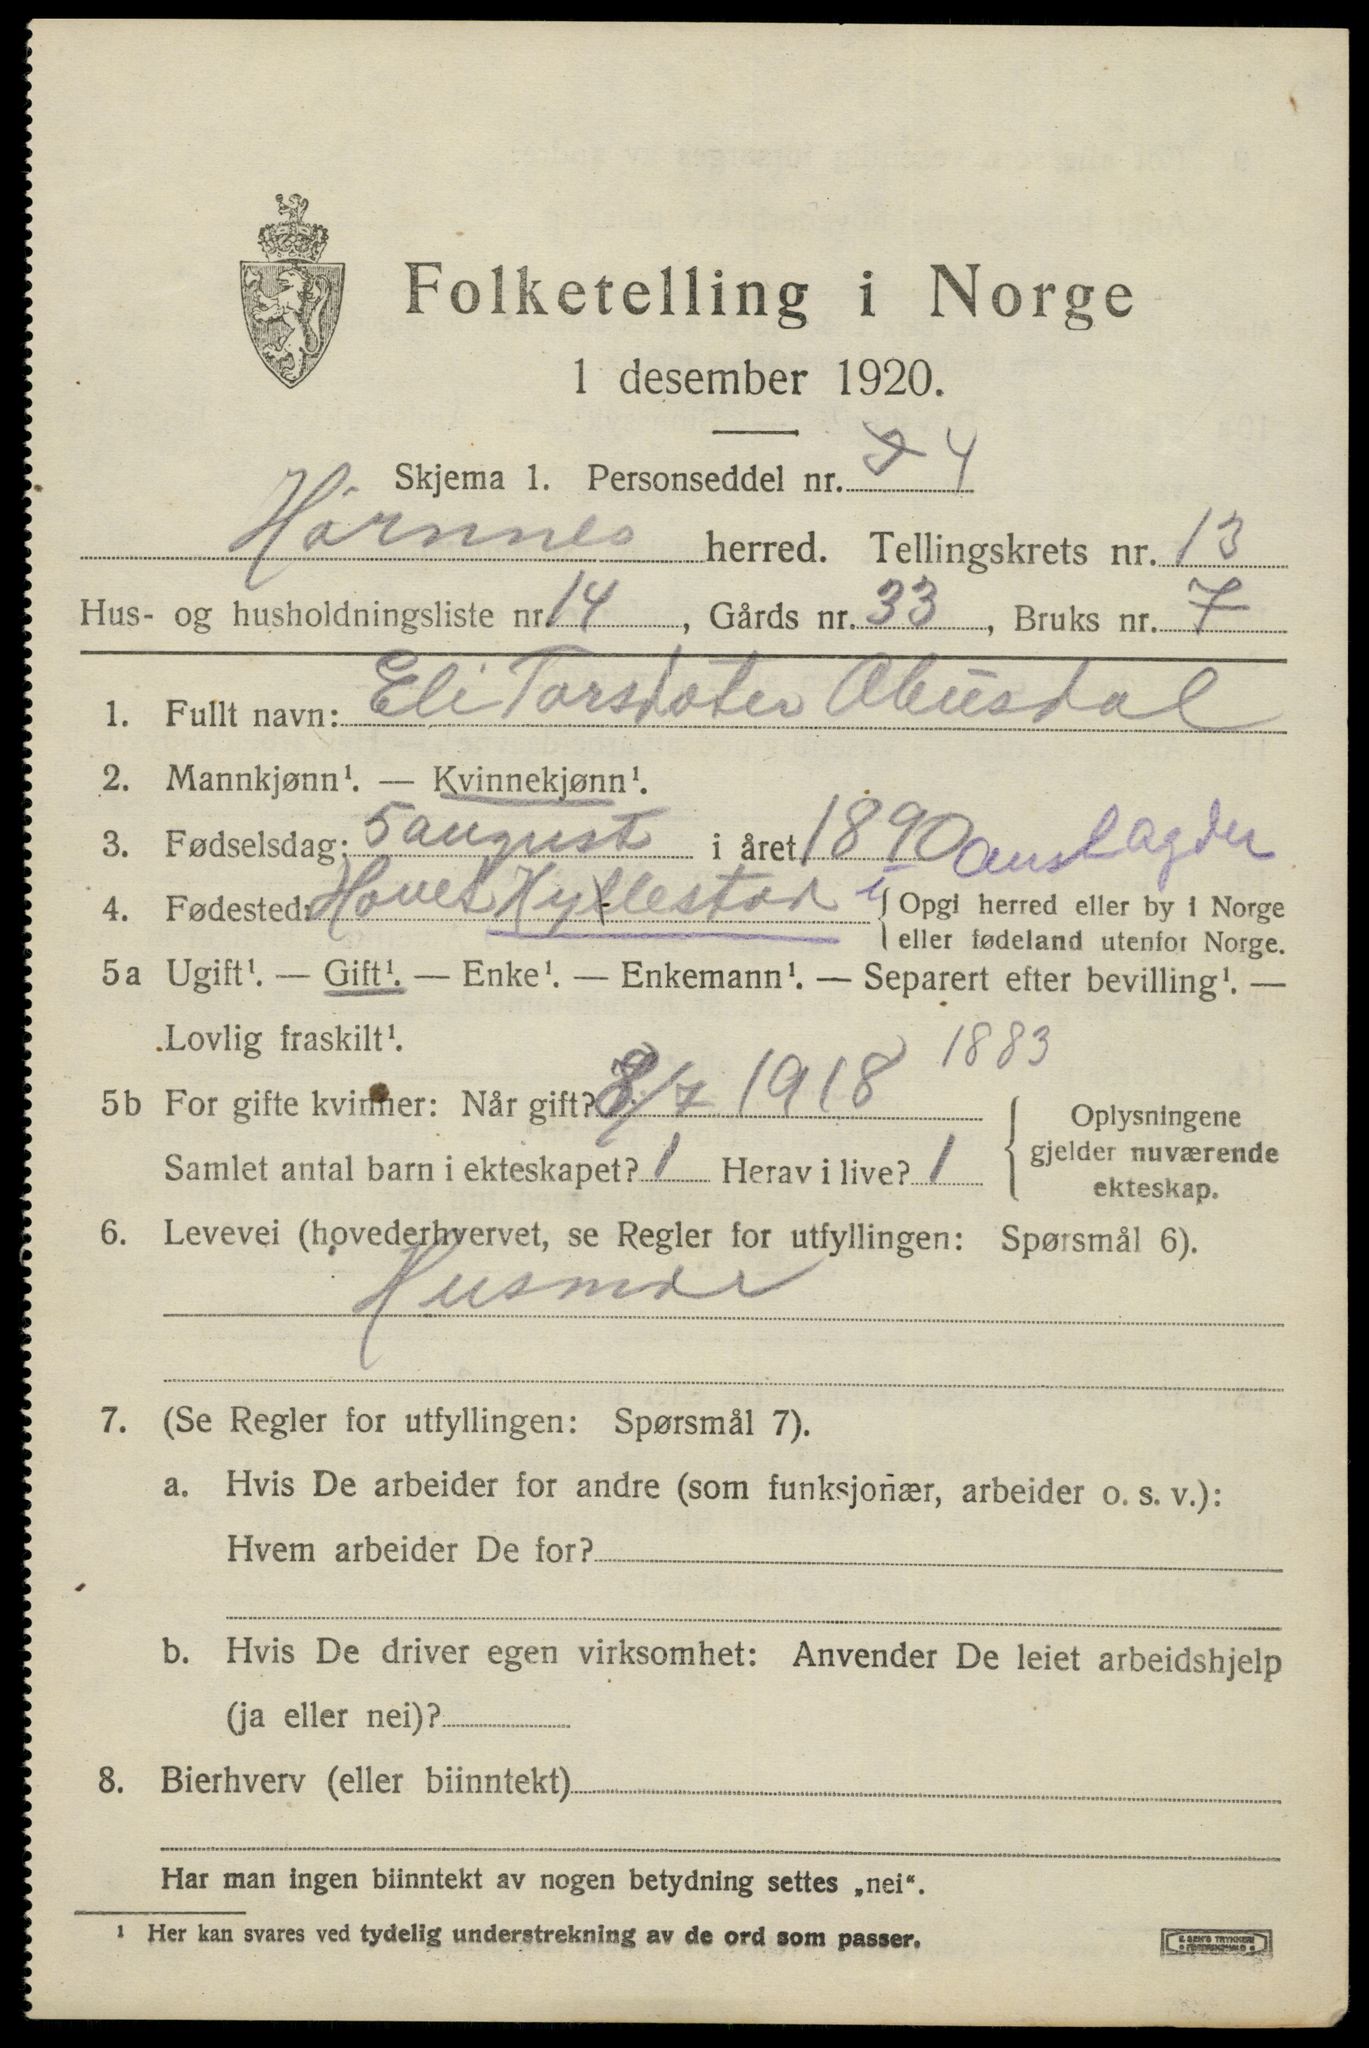 Folketelling i Norge
1 desember 1920.
Skjema 1. Personseddel nr. 4
Hornnes herred. Tellingskrets nr. 13
Hus- og husholdningsliste nr. 14, Gårds nr. 33, Bruks nr. 7
1. Fullt navn: Eli Torsdoter Abusdal
2. Mannkjønn¹. — Kvinnekjønn¹.
3. Fødselsdag: 5 august i året 1890 Aust agder
4. Fødested: Hovet Hyllestad i { Opgi herred eller by i Norge
eller fødeland utenfor Norge.
5a Ugift¹. — Gift¹. — Enke¹. — Enkemann¹. — Separert efter bevilling¹. —
Lovlig fraskilt¹.
1883
5b For gifte kvinner: Når gift? 8/7 1918
Samlet antal barn i ekteskapet? 1 Herav i live? 1
{ Oplysningene
gjelder nuværende
ekteskap.
6. Levevei (hovederhvervet, se Regler for utfyllingen: Spørsmål 6).
Husmor
7. (Se Regler for utfyllingen: Spørsmål 7).
a. Hvis De arbeider for andre (som funksjonær, arbeider o. s. v.):
Hvem arbeider De for?
b. Hvis De driver egen virksomhet: Anvender De leiet arbeidshjelp
(ja eller nei)?
8. Bierhverv (eller biinntekt)
Har man ingen biinntekt av nogen betydning settes „nei“.
¹ Her kan svares ved tydelig understrekning av de ord som passer.